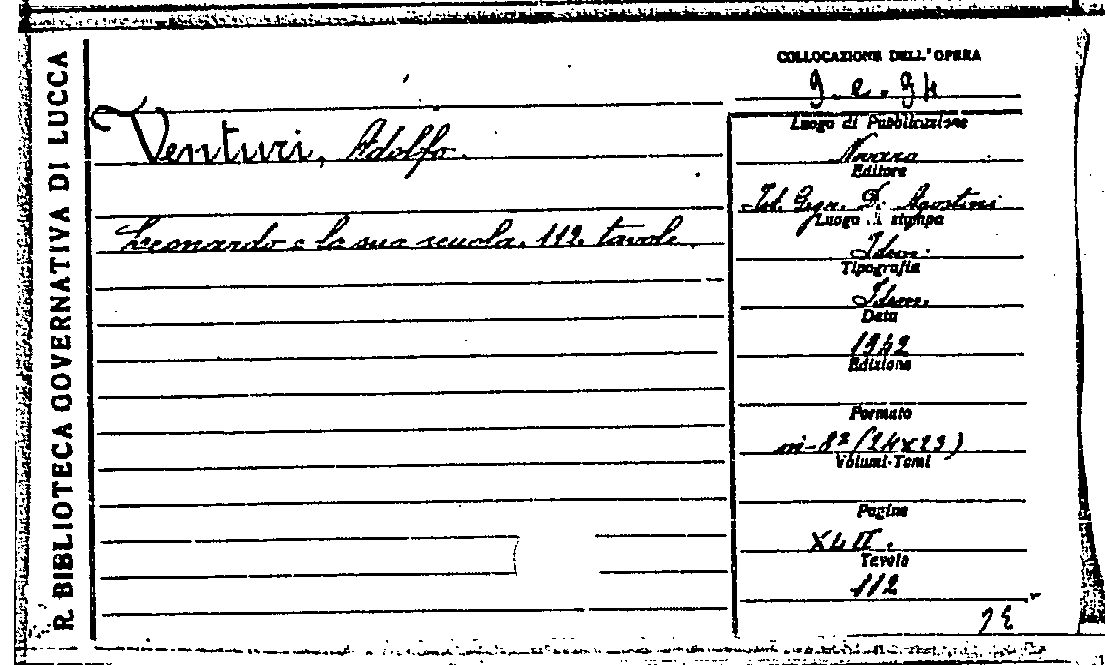 R. BIBLIOTECA GOVERNATIVA DI LUCCA
Venturi, Adolfo.
Leonardo e la sua scuola. 112 tavole.
COLLOCAZIONE DELL'OPERA
9. e. 94
Luogo di Pubblicazione
Novara
Editore
Ist. Gegr. De Agostini
Luogo di stampa
Idem.
Tipografia
Idem.
Data
1942
Edizione
Formato
in-8º (24x23)
Volumi-Tomi
Pagine
XLII.
Tavole
112